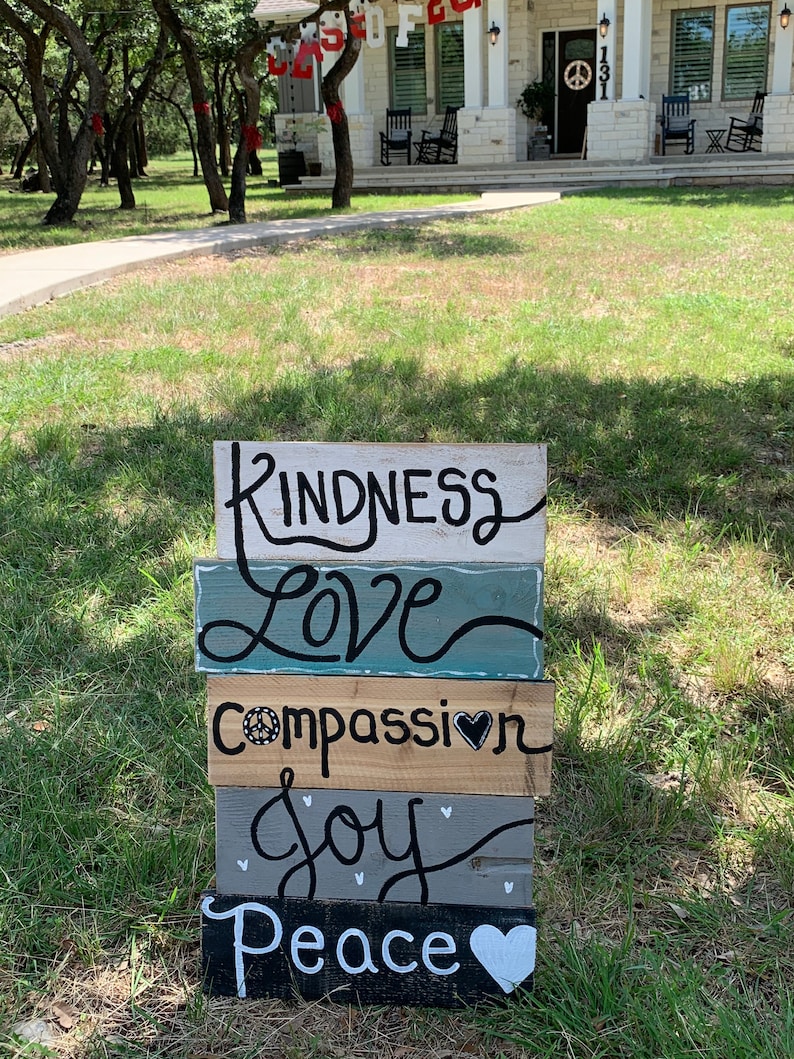 CLASS OF 2
131
KINDNESS
Love
Compassion
Joy
Peace